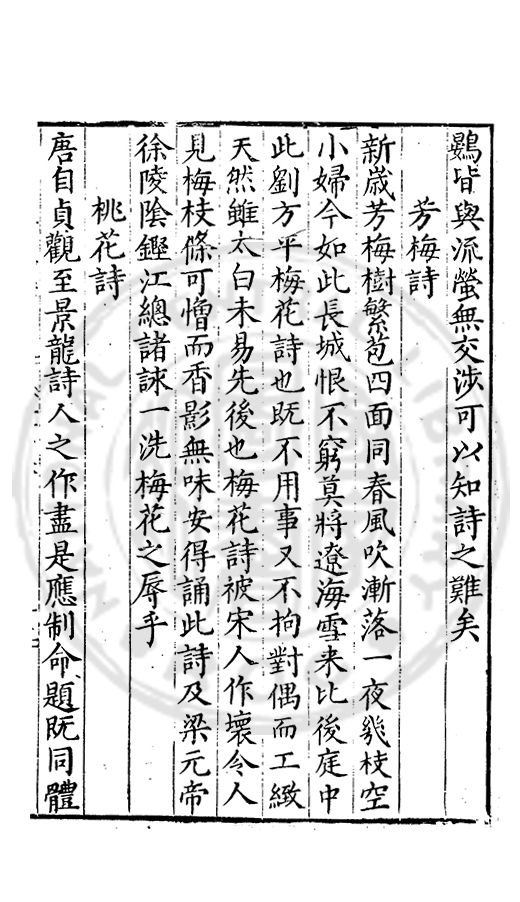 鷃皆與流螢無交涉可以知詩之難矣
芳梅詩
新歲芳梅樹繁苞四面同春風吹漸落一夜幾枝空
小婦今如此長城恨不窮莫將遼海雪来比後庭中
此劉方平梅花詩也既不用事又不拘對偶而工緻
天然雖太白未易先後也梅花詩被宋人作壞令人
見梅枝條可憎而香影無味安得誦此詩及梁元帝
徐陵陰鏗江總諸詠一洗梅花之辱乎
桃花詩
唐自貞觀至景龍詩人之作盡是應制命題既同體